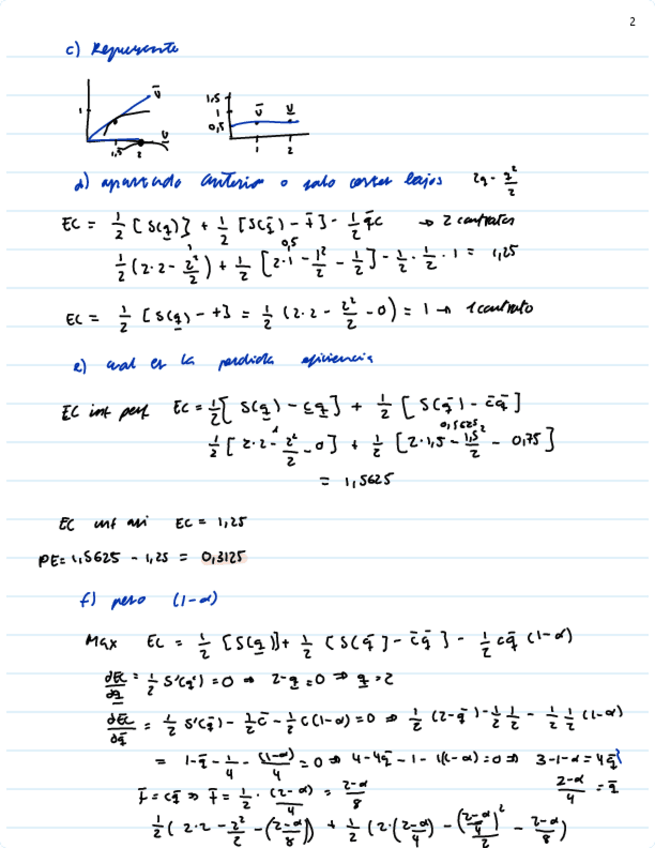 2
c) Represente
1 ū 1,5 2 u
1,5 1 0,5 ū u 1 2
d) apartado anterior o solo costes bajos 2q - q²/2
EC = 1/2 [S(q)] + 1/2 [S(q̄) - t̄] - 1/2 q̄c → 2 contratos
1/2 (2·2 - 2²/2) + 1/2 [2·1 - 1²/2 - 1/2] - 1/2 · 1/2 · 1 = 1,25
EC = 1/2 [S(q) - t] = 1/2 (2·2 - 2²/2 - 0) = 1 → 1 contrato
e) cual es la perdida eficiencia
EC inf perf EC = 1/2 [S(q) - cq] + 1/2 [S(q̄) - c̄q̄]
0,5625
1/2 [2·2 - 2²/2 - 0] + 1/2 [2·1,5 - 1,5²/2 - 0,75]
= 1,5625
EC inf asi EC = 1,25
PE = 1,5625 - 1,25 = 0,3125
f) peso (1-α)
Max EC = 1/2 [S(q)] + 1/2 [S(q̄) - c̄q̄] - 1/2 cq̄ (1-α)
dEC/dq = 1/2 S'(q) = 0 → 2-q = 0 ⇒ q = 2
dEC/dq̄ = 1/2 S'(q̄) - 1/2 c̄ - 1/2 c(1-α) = 0 ⇒ 1/2 (2-q̄) - 1/2 1/2 - 1/2 1/2 (1-α)
= 1-q̄ - 1/4 - (1-α)/4 = 0 ⇒ 4-4q̄ - 1 - 1(1-α) = 0 ⇒ 3-1-α = 4q̄
t̄ = cq̄ ⇒ t̄ = 1/2 · (2-α)/4 = (2-α)/8 (2-α)/4 = q̄
1/2 (2·2 - 2²/2 - ((2-α)/8)) + 1/2 (2·((2-α)/4) - ((2-α)/4)²/2 - (2-α)/8)